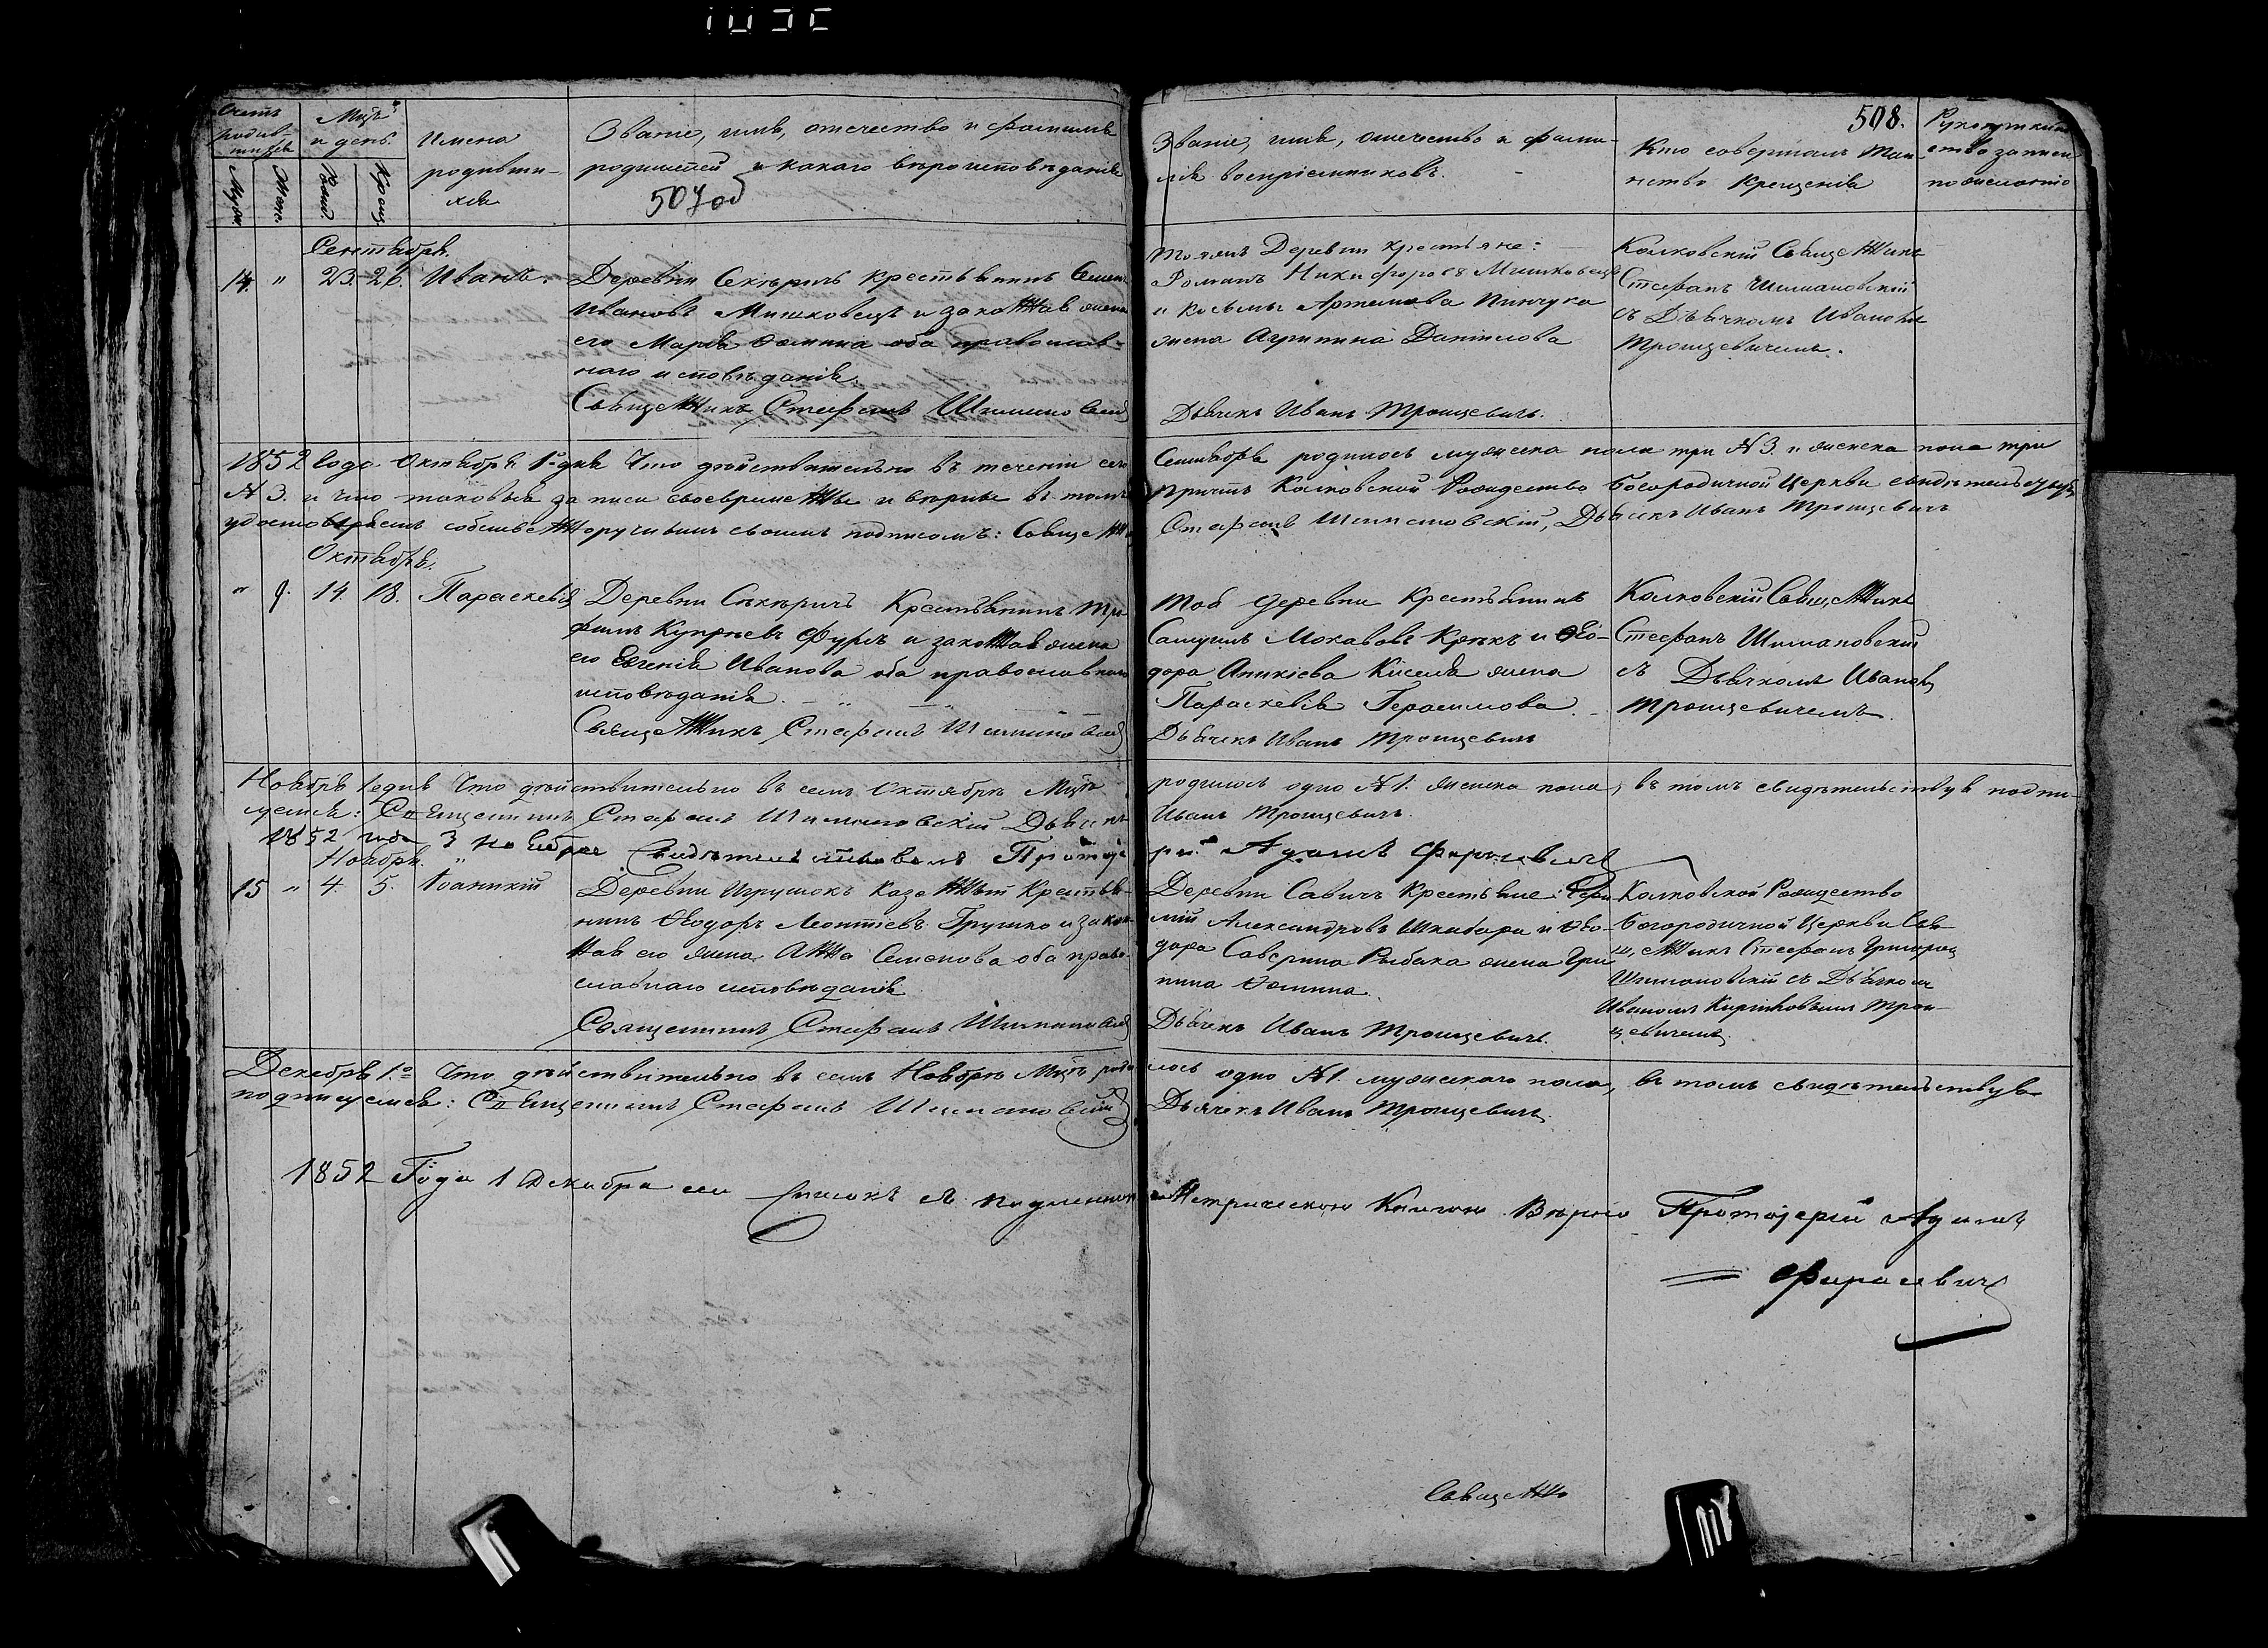 508.
Счетъ родив-шихся
Муж. Жен.
Мѣсць и день.
Рожд. Крещ.
Имена родивши-хся
Званіе, имя, отечество и фамилія
родителей и какаго вѣроисповѣданія
507 об
Званіе, имя, отечество и фами-
лія воспріемниковъ.
Кто совершалъ Таи-
нство Крещенія
Сентябрь.
14. " 23. 26. Иванъ.
Деревни Секѣричъ крестьянинъ Семенъ
Ивановъ Мишковецъ и законная жена
его Марія Ѳомина оба православ-
наго исповѣданія.
Священникъ Стефанъ Шимановскій
Тояжъ Деревни крестьяне:
Романъ Никифоровъ Мишковецъ
и Козьмы Артемова Пинчука
жена Агрипина Даніилова
Дьячекъ Иванъ Троицевичъ.
Колковскій Священникъ
Стефанъ Шимановскій
съ Дьячкомъ Иваномъ
Троицевичемъ.
1852 Года Октября 1 дня Что дѣйствительно въ теченіи сего Сентября родилось мужеска пола три №3. и женска пола три
№3. и что таковыя записи своевременны и вѣрны въ томъ Причтъ Колковской Рождество Богородичной Церкви свидѣтельствуя
удостовѣряемъ собственноручнымъ своимъ подписомъ: Священникъ Стефанъ Шимановскій, Дьячекъ Иванъ Троицевичъ
Октябрь.
" 9. 14. 18. Параскевія
Деревни Секѣричъ Крестьянинъ Тро-
фимъ Купрѣевъ Фурсъ и законная жена
его Евгенія Иванова оба православнаго
исповѣданія.
Священникъ Стефанъ Шимановскій
Той Деревни Крестьянинъ
Самуилъ Мокавовъ Крекъ и Ѳео-
дора Аникіева Киселя жена
Параскевія Герасимова.
Дьячекъ Иванъ Троицевичъ
Колковскій Священникъ
Стефанъ Шимановскій
съ Дьячкомъ Иваномъ
Троицевичемъ.
Ноября 1 дня Что дѣйствительно въ семъ Октябрѣ Мѣсцѣ родилось одно №1. женска пола, въ томъ свидѣтельствуя подпи-
уемся: Священникъ Стефанъ Шимановскій Дьячекъ Иванъ Троицевичъ.
1852 года 3 Ноября Свидѣтельствовалъ Протоіерей Адамъ Фарасевичъ
Ноябрь.
15 " 4. 5. Іоанникій
Деревни Игрушокъ Казенный Крестья-
нинъ Ѳеодоръ Леонтіевъ Грушко и закон-
ная его жена Анна Семенова оба право-
славнаго исповѣданія
Священникъ Стефанъ Шимановскій
Деревни Савичъ Крестьяне:
Александровъ Шкабара и Ѳео-
дора Саверина Рыбака жена Гри
пина Ѳомина.
Дьячекъ Иванъ Троицевичъ.
Колковской Рождество
Богородичной Церкви Свя-
щенникъ Стефанъ
Шимановскій съ Дьячкомъ
Иваномъ Трои-
цевичемъ.
Декабря 1. Что дѣйствительно въ семъ Ноябрѣ Мѣсцѣ родилось одно №1. мужескаго пола, въ томъ свидѣтельствуя
подписуемся: Священникъ Стефанъ Шимановскій Дьячекъ Иванъ Троицевичъ.
1852 Года 1 Декабря сей Списокъ съ подлинною Метрическою Книгою Вѣрно Протоіерей Адамъ
Фарасевичъ
Священно